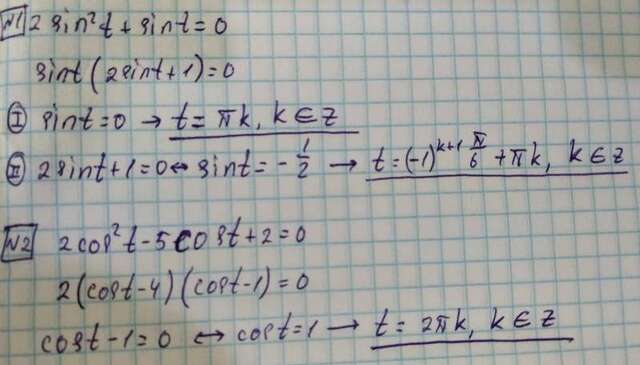 N1 2 sin²t + sint = 0
sint (2sint + 1) = 0
I sint = 0 → t = πk, k ∈ z
II 2sint + 1 = 0 ↔ sint = -1/2 → t = (-1)^(k+1) π/6 + πk, k ∈ z
N2 2cos²t - 5cost + 2 = 0
2(cost - 4)(cost - 1) = 0
cost - 1 = 0 ↔ cost = 1 → t = 2πk, k ∈ z